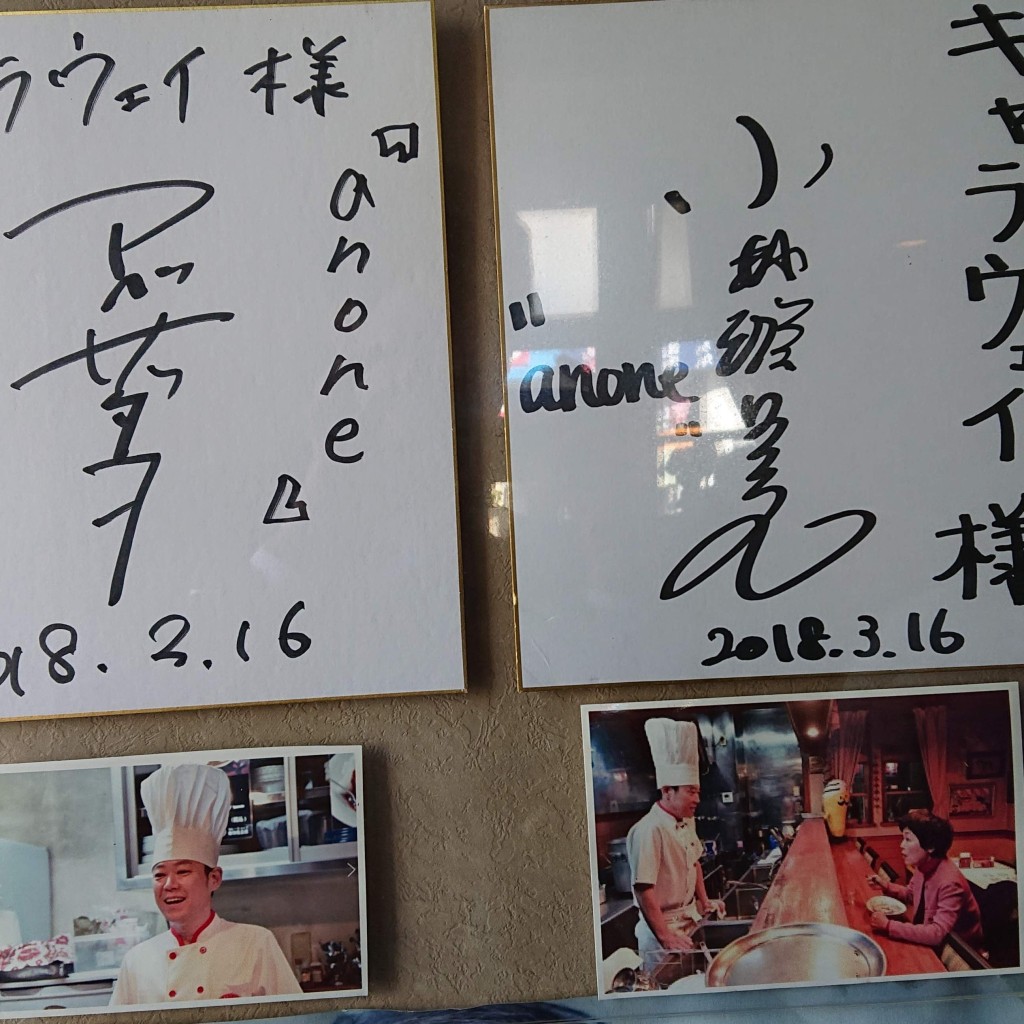 ラウェイ 様
『anone』
018.3.16
キャラウェイ様
小林
"anone"
2018.3.16